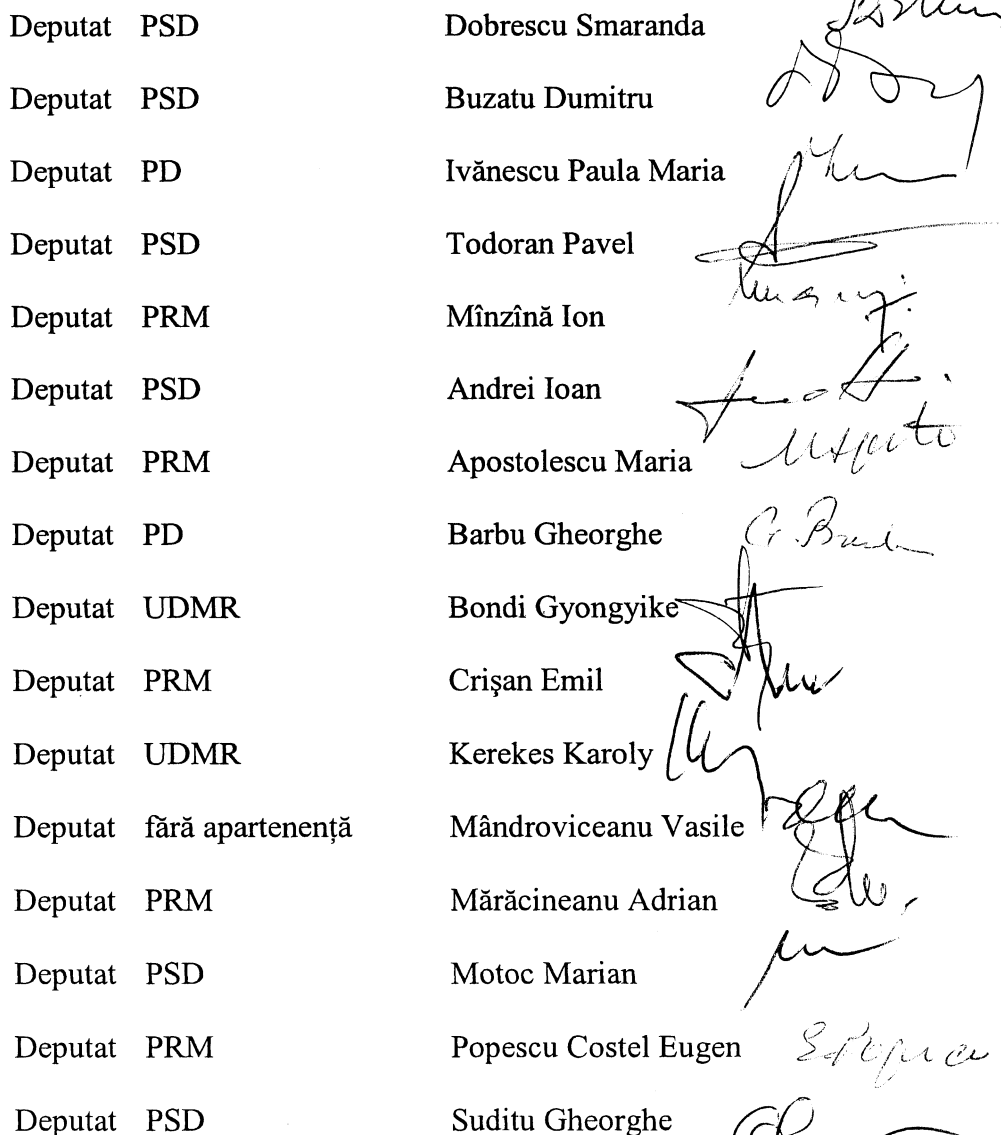 Deputat PSD Dobrescu Smaranda
Deputat PSD Buzatu Dumitru
Deputat PD Ivănescu Paula Maria
Deputat PSD Todoran Pavel
Deputat PRM Mînzînă Ion
Deputat PSD Andrei Ioan
Deputat PRM Apostolescu Maria
Deputat PD Barbu Gheorghe
Deputat UDMR Bondi Gyongyike
Deputat PRM Crişan Emil
Deputat UDMR Kerekes Karoly
Deputat fără apartenență Mândroviceanu Vasile
Deputat PRM Mărăcineanu Adrian
Deputat PSD Motoc Marian
Deputat PRM Popescu Costel Eugen
Deputat PSD Suditu Gheorghe